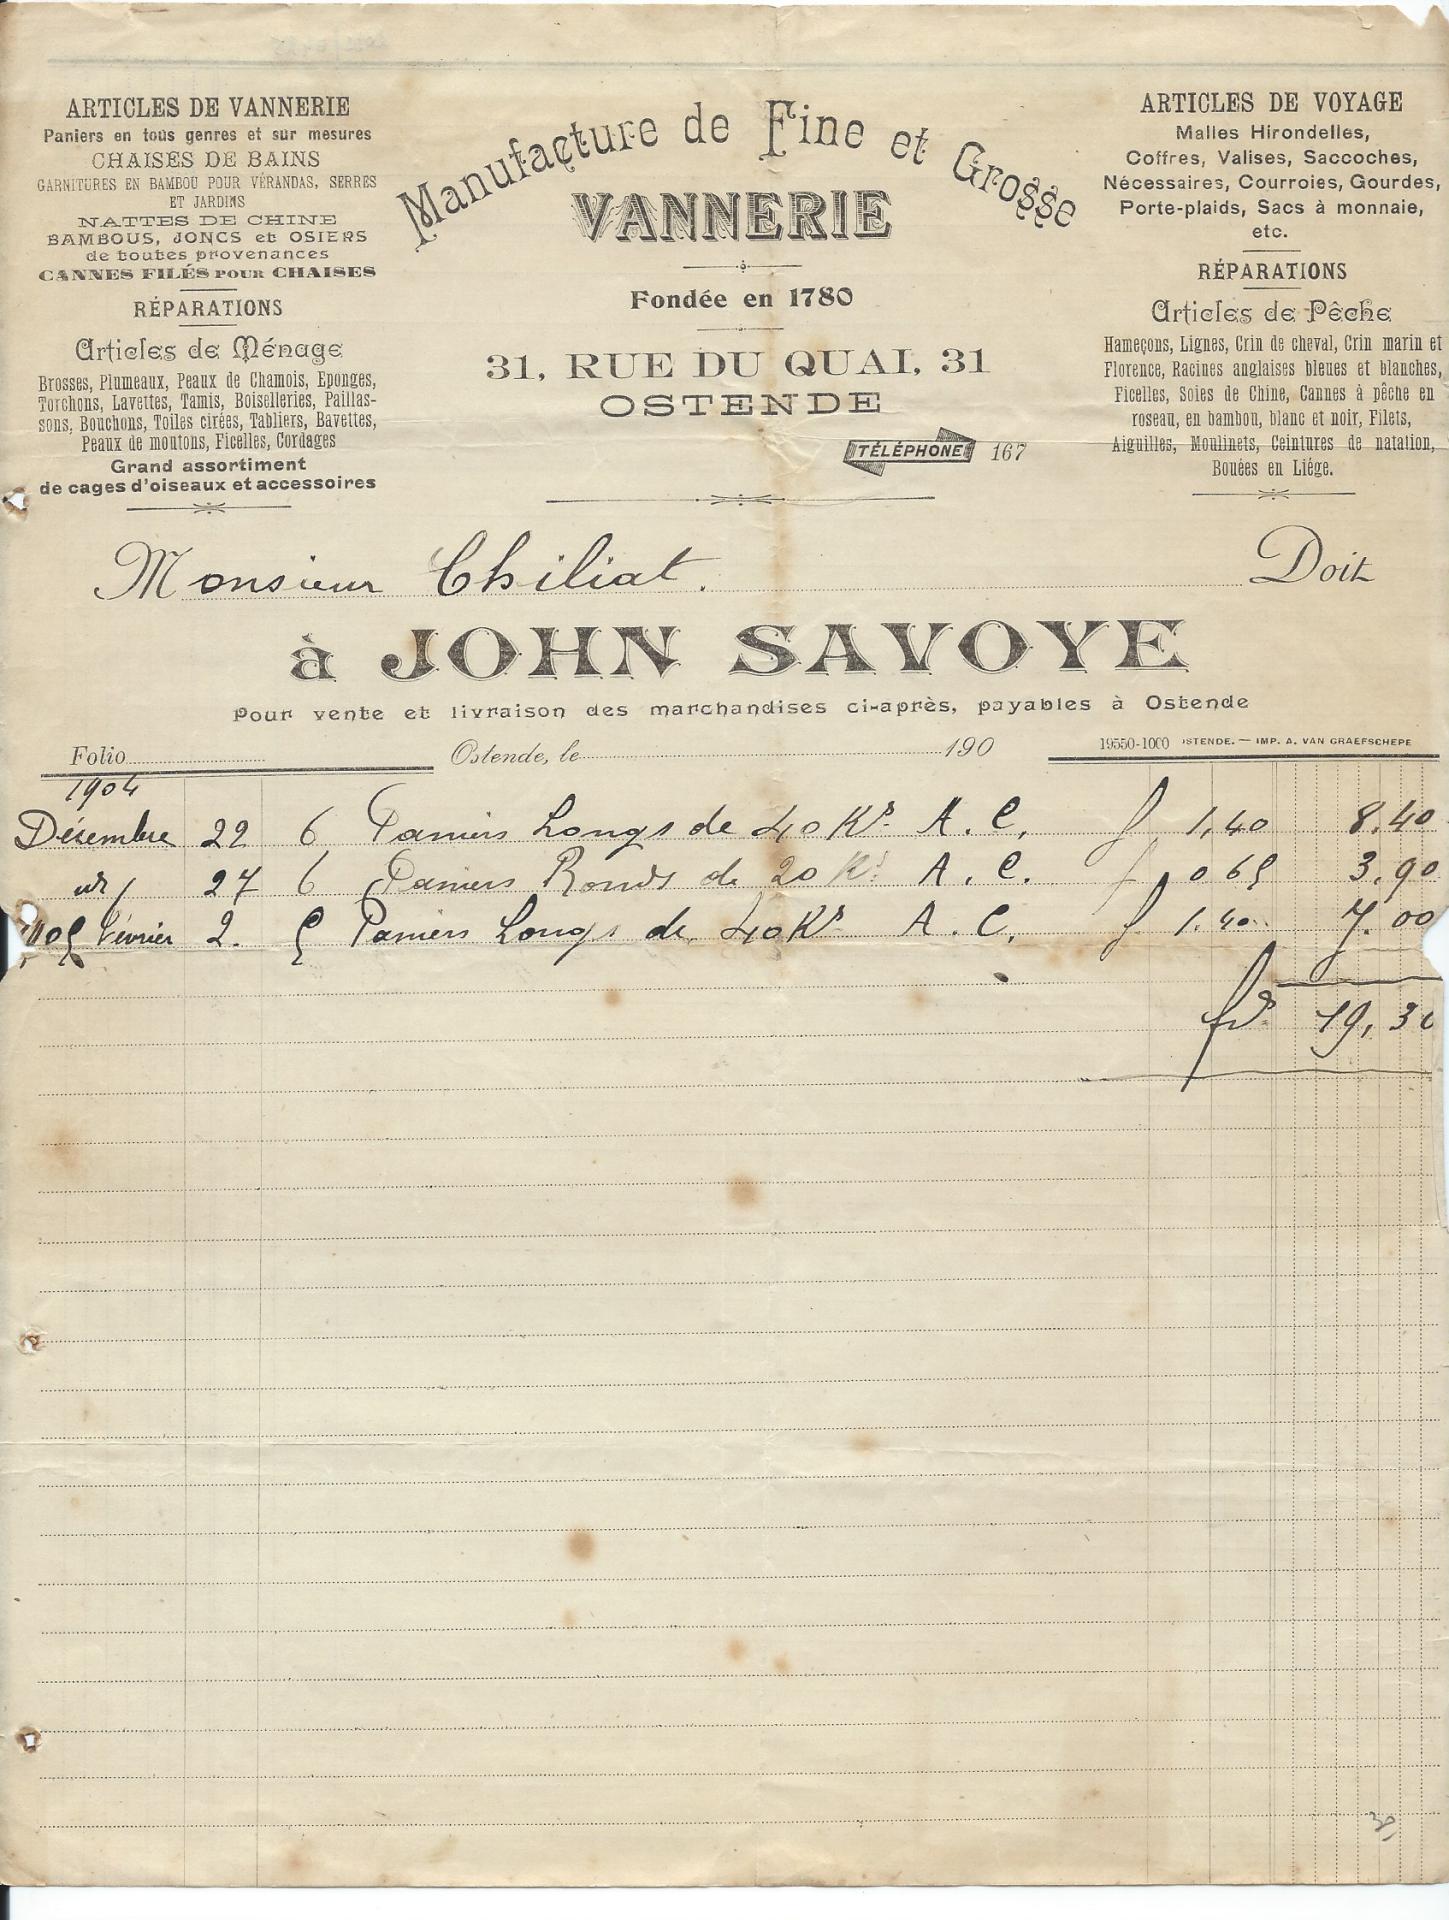 ARTICLES DE VANNERIE
Paniers en tous genres et sur mesures
CHAISES DE BAINS
GARNITURES EN BAMBOU POUR VÉRANDAS, SERRES
ET JARDINS
NATTES DE CHINE
BAMBOUS, JONCS et OSIERS
de toutes provenances
CANNES FILÉS POUR CHAISES
RÉPARATIONS
Articles de Ménage
Brosses, Plumeaux, Peaux de Chamois, Eponges,
Torchons, Lavettes, Tamis, Boiselleries, Paillas-
sons, Bouchons, Toiles cirées, Tabliers, Bavettes,
Peaux de moutons, Ficelles, Cordages
Grand assortiment
de cages d'oiseaux et accessoires
Manufacture de Fine et Grosse
VANNERIE
Fondée en 1780
31, RUE DU QUAI, 31
OSTENDE
TÉLÉPHONE 167
ARTICLES DE VOYAGE
Malles Hirondelles,
Coffres, Valises, Saccoches,
Nécessaires, Courroies, Gourdes,
Porte-plaids, Sacs à monnaie,
etc.
RÉPARATIONS
Articles de Pêche
Hameçons, Lignes, Crin de cheval, Crin marin et
Florence, Racines anglaises bleues et blanches,
Ficelles, Soies de Chine, Cannes à pêche en
roseau, en bambou, blanc et noir, Filets,
Aiguilles, Moulinets, Ceintures de natation,
Bouées en Liége.
Monsieur Chiliat. Doit
à JOHN SAVOYE
Pour vente et livraison des marchandises ci-après, payables à Ostende
Folio Ostende, le 190 19550-1000 OSTENDE. — IMP. A. VAN GRAEFSCHEPE
1904
Désembre 22 6 Paniers Longs de 40 Ks A. C. f 1,40 8.40
27 6 Paniers Ronds de 20 Ks A. C. f 0 65 3,90
1905 Février 2. 5 Paniers Longs de 40 Ks A. C. f 1.40 7.00
frs 19,30